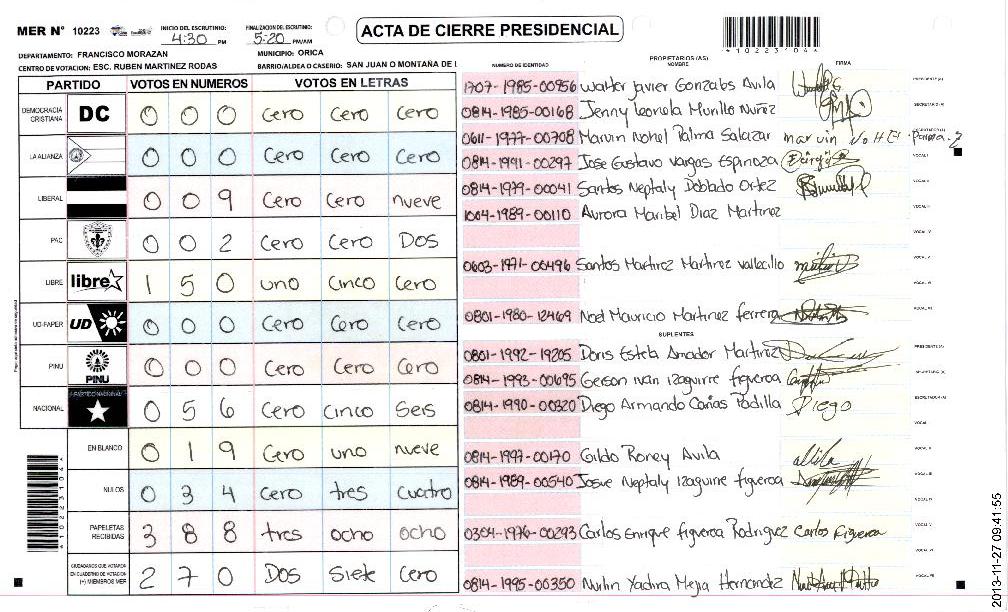 MER N° 10223
INICIO DEL ESCRUTINIO: 4:30 PM
FINALIZACION DEL ESCRUTINIO: 5:20 PM/AM
ACTA DE CIERRE PRESIDENCIAL
*10223104*
DEPARTAMENTO: FRANCISCO MORAZAN
MUNICIPIO: ORICA
CENTRO DE VOTACION: ESC. RUBEN MARTINEZ RODAS
BARRIO/ALDEA O CASERIO: SAN JUAN O MONTAÑA DE L
PARTIDO VOTOS EN NUMEROS VOTOS EN LETRAS
DEMOCRACIA CRISTIANA DC 0 0 0 Cero Cero Cero
LA ALIANZA 0 0 0 Cero Cero Cero
LIBERAL 0 0 9 Cero Cero nueve
PAC 0 0 2 Cero Cero Dos
LIBRE libre 1 5 0 uno cinco cero
UD-FAPER UD 0 0 0 Cero Cero Cero
PINU PINU 0 0 0 Cero Cero Cero
NACIONAL 0 5 6 Cero Cinco Seis
EN BLANCO 0 1 9 Cero uno nueve
NULOS 0 3 4 Cero tres cuatro
PAPELETAS RECIBIDAS 3 8 8 tres ocho ocho
CIUDADANOS QUE VOTARON EN CUADERNO DE VOTACION (+) MIEMBROS MER 2 7 0 Dos Siete Cero
PROPIETARIOS (AS)
NUMERO DE IDENTIDAD NOMBRE FIRMA
1707-1985-00956 Walter Javier Gonzales Avila PRESIDENTE(A)
0814-1985-00168 Jenny Leoniela Murillo Nuñez SECRETARIO(A)
0611-1977-00708 Marvin Nohel Palma Salazar
0814-1991-00297 Jose Gustavo Vargas Espinoza VOCAL I
0814-1979-00041 Santos Neptaly Doblado Ortez VOCAL II
1004-1989-00110 Aurora Maribel Diaz Martinez VOCAL III
VOCAL IV
0603-1971-00496 Santos Martinez Martinez Vallecillo VOCAL V
VOCAL VI
0801-1980-12469 Noel Mauricio Martinez ferrera VOCAL VII
SUPLENTES
0801-1992-19205 Doris Estela Amador Martinez PRESIDENTE(A)
0814-1993-00695 Gerson Ivan izaguirre figueroa SECRETARIO(A)
0814-1990-00320 Diego Armando Cañas Padilla Diego ESCRUTADOR(A)
VOCAL I
0814-1997-00170 Gildo Roney Avila VOCAL II
0814-1989-00540 Josue Neptaly izaguirre figueroa VOCAL III
VOCAL IV
0304-1976-00293 Carlos Enrique figueroa Rodriguez Carlos Figueroa VOCAL V
VOCAL VI
0814-1995-00350 Nurlin Yadira Mejia Hernandez VOCAL VII
*10223104*
2013-11-27 09:41:55